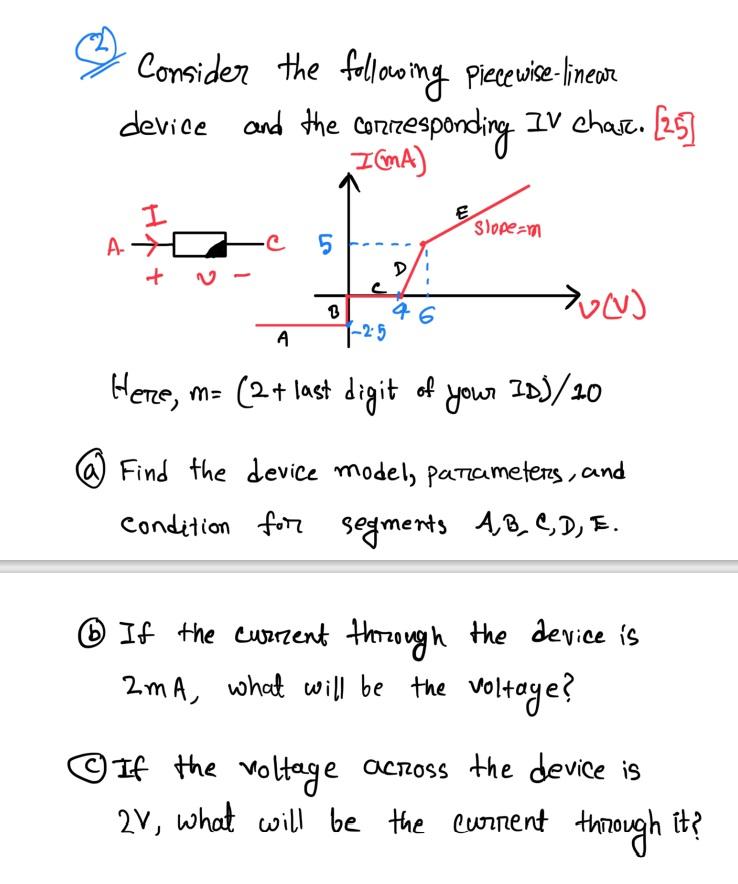 (2) Consider the following piecewise-linear
device and the corresponding IV char. [25]
I(mA)
I
A C
+ v -
5
E
slope=m
D
C
B
4 6
v(V)
-2.5
A
Here, m= (2+ last digit of your ID)/20
(a) Find the device model, parameters, and
condition for segments A, B, C, D, E.
(b) If the current through the device is
2mA, what will be the voltage?
(c) If the voltage across the device is
2V, what will be the current through it?